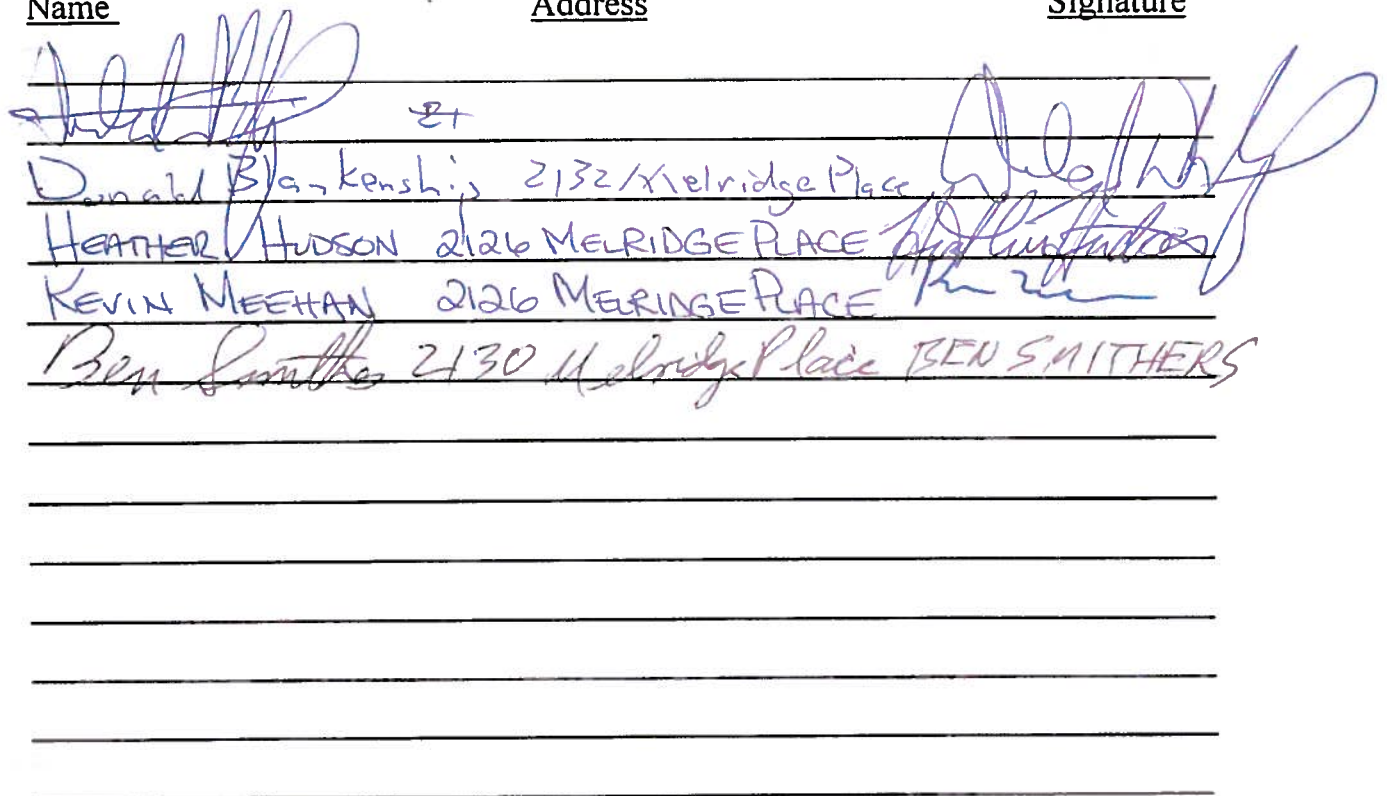 Name Address Signature
21
Donald Blankenship 2132 Melridge Place
HEATHER HUDSON 2126 MELRIDGE PLACE Heather Hudson
KEVIN MEEHAN 2126 MELRIDGE PLACE
Ben Smithers 2130 Melridge Place BEN SMITHERS